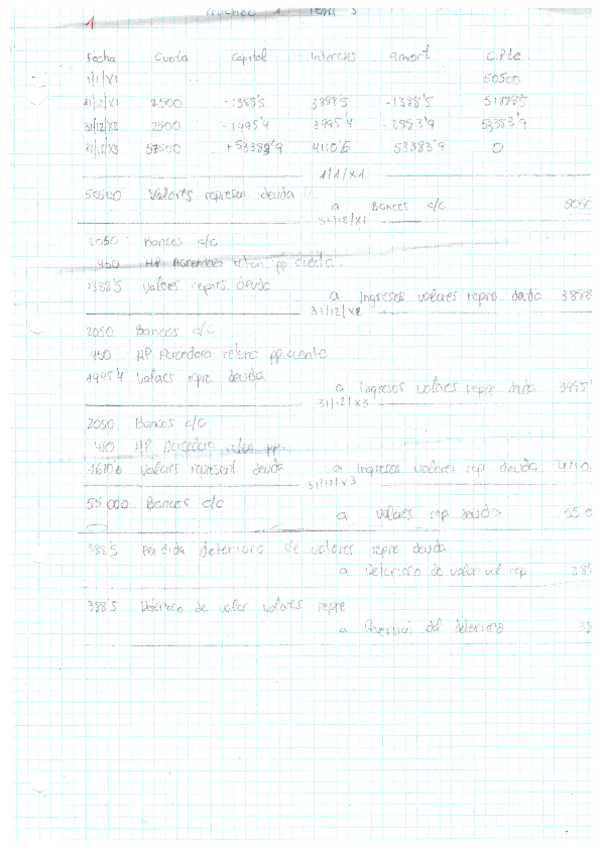 1
Fecha Cuota Capital Intereses Amort C.Pte
1/1/X1 50500
31/12/X1 2500 -1388'5 3888'5 -1388'5 51888'5
31/12/X2 2500 -1495'4 3995'4 -2883'9 53383'9
31/12/X3 57500 +53383'9 4110'6 53383'9 0
1/1/X1
50500 Valores represen deuda
a Bancos c/c 5050
31/12/X1
2050 Bancos c/c
450 HP Acreedora reten. pp. cuenta.
1388'5 Valores repres. deuda
a Ingresos valores repre. deuda 3888
31/12/X2
2050 Bancos c/c
450 HP Acreedora retenc pp. cuenta
1495'4 Valores repre deuda
a Ingresos valores repre deuda 3995'
31/12/X3
2050 Bancos c/c
HP Acreedora reten pp.
1610'6 Valores represent deuda a Ingresos valores rep deuda 4110
31/12/X3
55.000 Bancos c/c
a Valores rep deuda 55 0
388'5 Perdida deterioro de valores repre deuda
a Deterioro de valor val rep 388
388'5 Deterioro de valor valores repre
a Reversión del deterioro 38